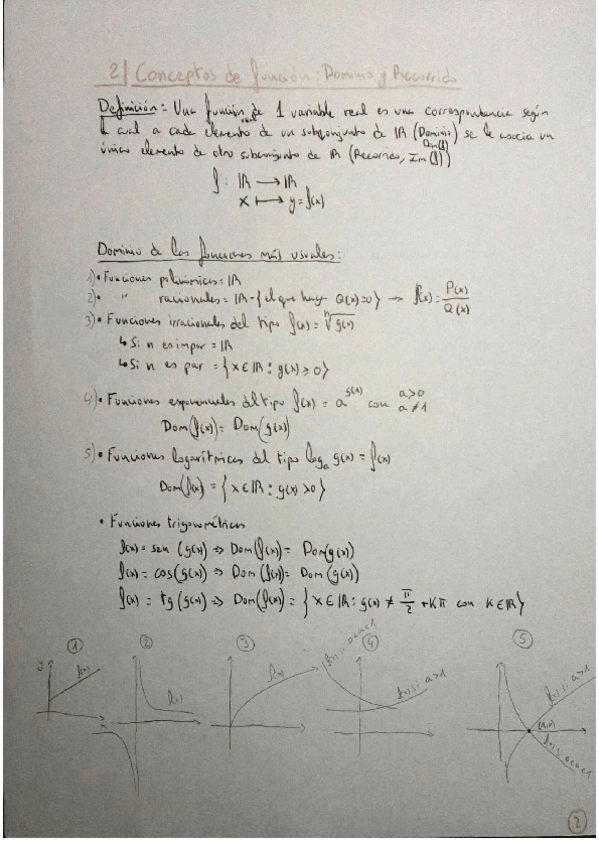 2| Conceptos de función: Dominio y Recorrido
Definición: Una función real de 1 variable real es una correspondencia según
la cual a cada elemento de un subconjunto de ℝ (Dominio) se le asocia un
Dom(f)
único elemento de otro subconjunto de ℝ (Recorrido, Im(f))
f: ℝ → ℝ
x ↦ y = f(x)
Dominio de las funciones más usuales:
1) • Funciones polinómicas = ℝ
2) • " racionales = ℝ - {el que haga Q(x)=0} → f(x) = P(x)/Q(x)
3) • Funciones irracionales del tipo f(x) = ⁿ√g(x)
↳ Si n es impar = ℝ
↳ Si n es par = {x ∈ ℝ : g(x) ≥ 0}
4) • Funciones exponenciales del tipo f(x) = a^g(x) con a>0 a≠1
Dom(f(x)) = Dom(g(x))
5) • Funciones logarítmicas del tipo logₐ g(x) = f(x)
Dom(f(x)) = {x ∈ ℝ : g(x) > 0}
• Funciones trigonométricas
f(x) = sen (g(x)) ⇒ Dom(f(x)) = Dom(g(x))
f(x) = cos(g(x)) ⇒ Dom(f(x)) = Dom(g(x))
f(x) = tg(g(x)) ⇒ Dom(f(x)) = {x ∈ ℝ : g(x) ≠ π/2 + Kπ con K ∈ ℝ}
1 2 3 4 5
y f(x) x
f(x)
f(x)
f(x) si 0<a<1
f(x) si a>1
f(x) si a>1
(1,0)
f(x) si 0<a<1
2